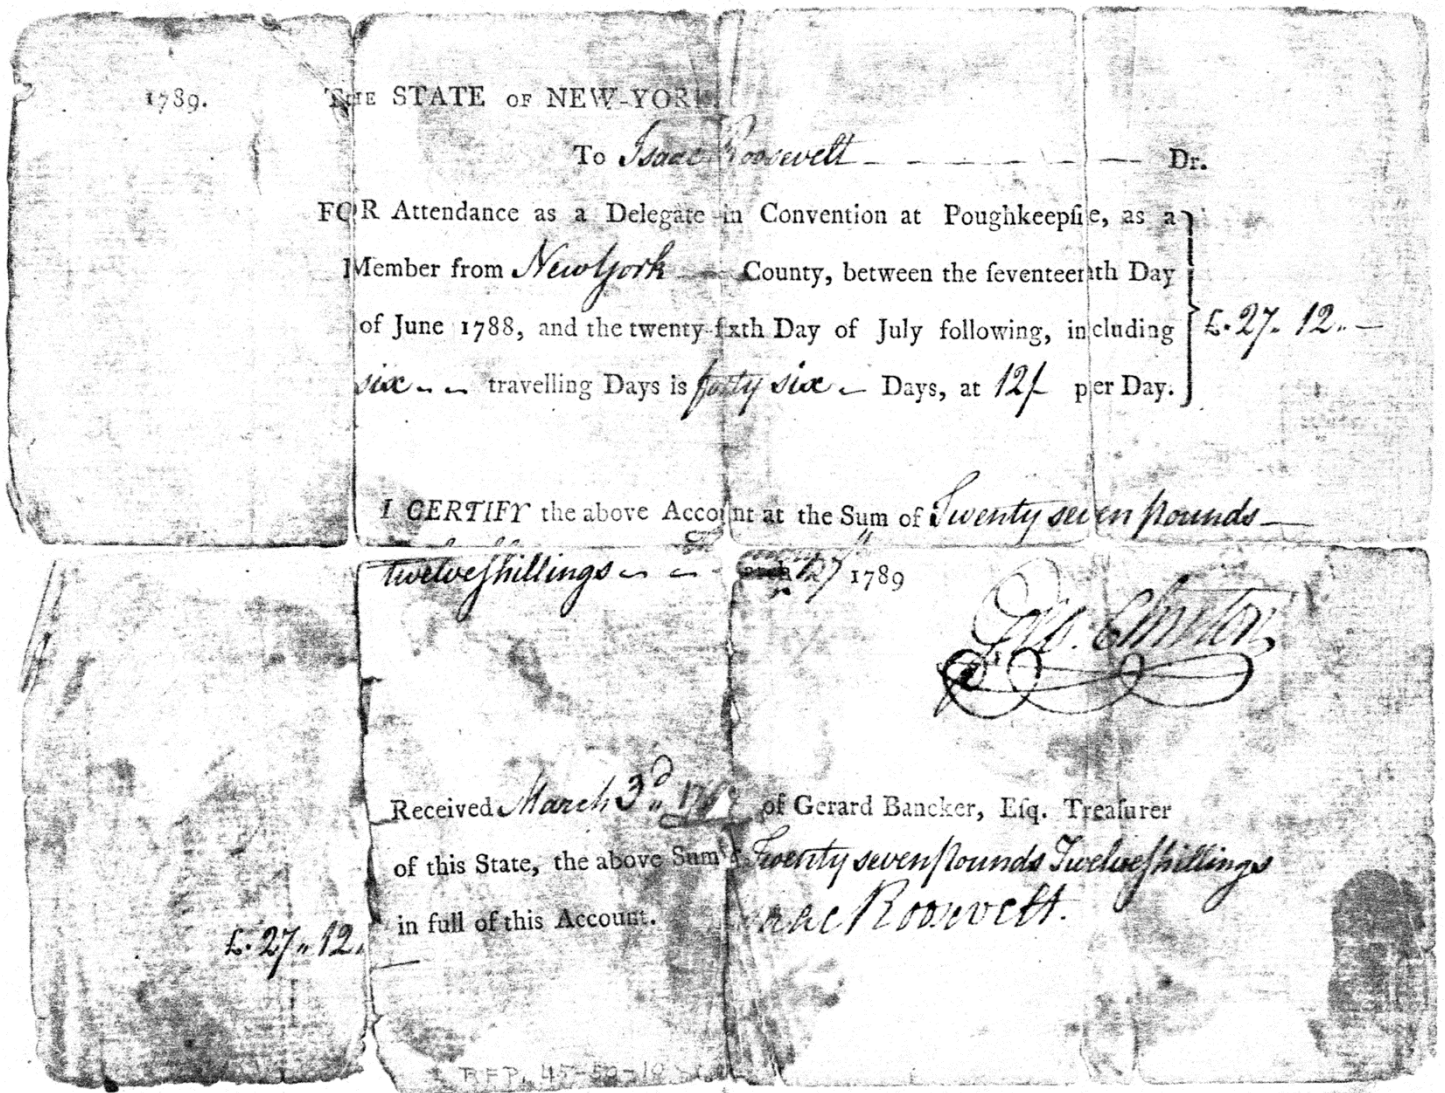 1789. THE STATE OF NEW-YORK
To Isaac Roosevelt Dr.
FOR Attendance as a Delegate in Convention at Poughkeepſie, as a
Member from New York County, between the ſeventeenth Day
of June 1788, and the twenty-ſixth Day of July following, including £. 27.. 12..
six travelling Days is forty six Days, at 12/ per Day.
I CERTIFY the above Account at the Sum of Twenty seven pounds
twelve ſhillings 27 1789
Geo. Clinton
Received March 3d 1789 of Gerard Bancker, Eſq. Treaſurer
of this State, the above Sum Twenty seven pounds Twelve ſhillings
in full of this Account. Isaac Roosevelt.
£. 27.. 12.
RFP. 45-50-10